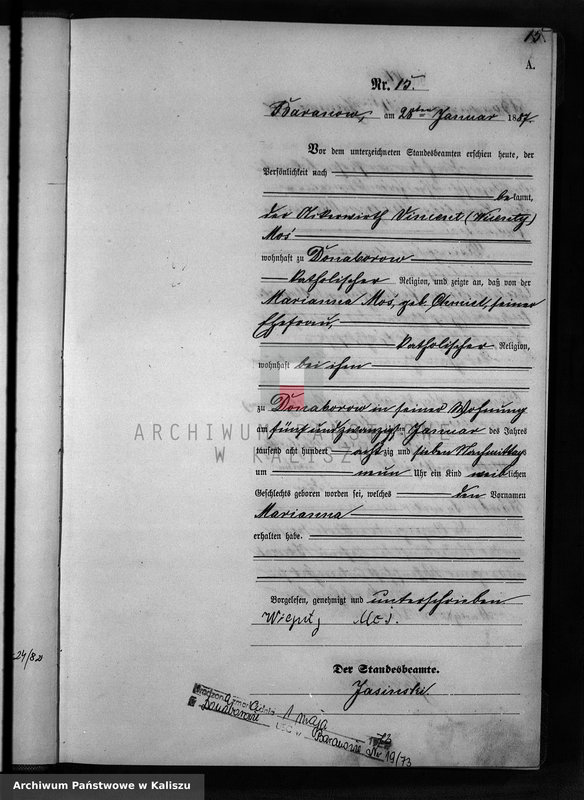 15.
A.
Nr. 15.
Baranow, am 26ten Januar 1887.
Vor dem unterzeichneten Standesbeamten erschien heute, der
Persönlichkeit nach
bekannt,
der Ackerwirth Vincent (Wicenty)
Moś
wohnhaft zu Donaborow
katholischer Religion, und zeigte an, daß von der
Marianna Moś, geb. seiner
Ehefrau,
katholischer Religion,
wohnhaft bei ihm
zu Donaborow in seiner Wohnung
am fünf und zwanzigsten Januar des Jahres
tausend acht hundert achtzig und sieben Nachmittags
um neun Uhr ein Kind weiblichen
Geschlechts geboren worden sei, welches den Vornamen
Marianna
erhalten habe.
Vorgelesen, genehmigt und unterschrieben
Moś.
Der Standesbeamte.
Jasinski
1 maja
Donaborowie USC w Baranowie Nr 19/73
24/82
ARCHIWUM PAŃSTWOWE
W KALISZU
Archiwum Państwowe w Kaliszu